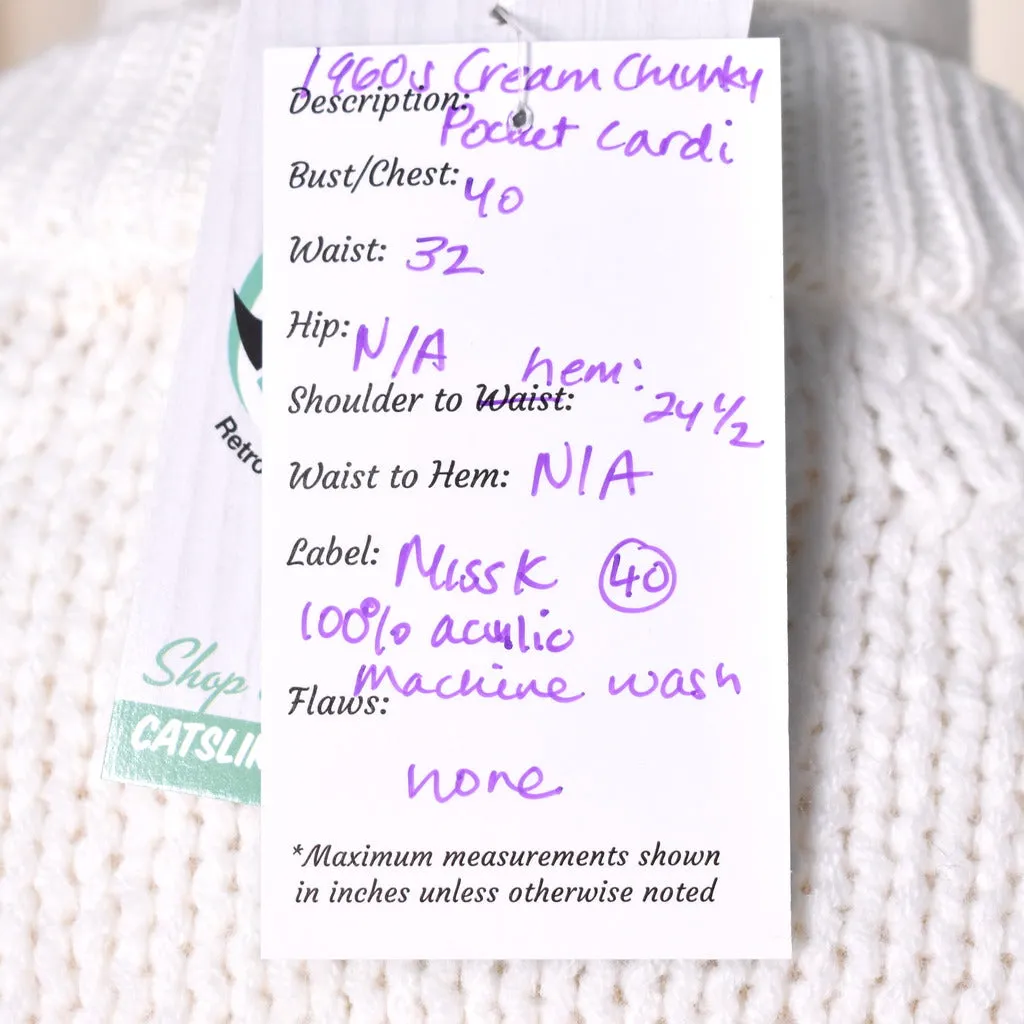 1960s Cream Chunky
Description:
Pocket Cardi
Bust/Chest: 40
Waist: 32
Hip: N/A
hem:
Shoulder to Waist: 24 1/2
Waist to Hem: N/A
Label: Miss K 40
100% acrylic
Machine wash
Flaws:
none
*Maximum measurements shown
in inches unless otherwise noted
Retro
Shop
CATSLIN